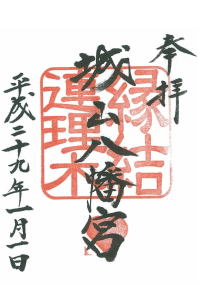 奉拝
縁結
連理木
城山八幡宮
平成二十九年一月一日